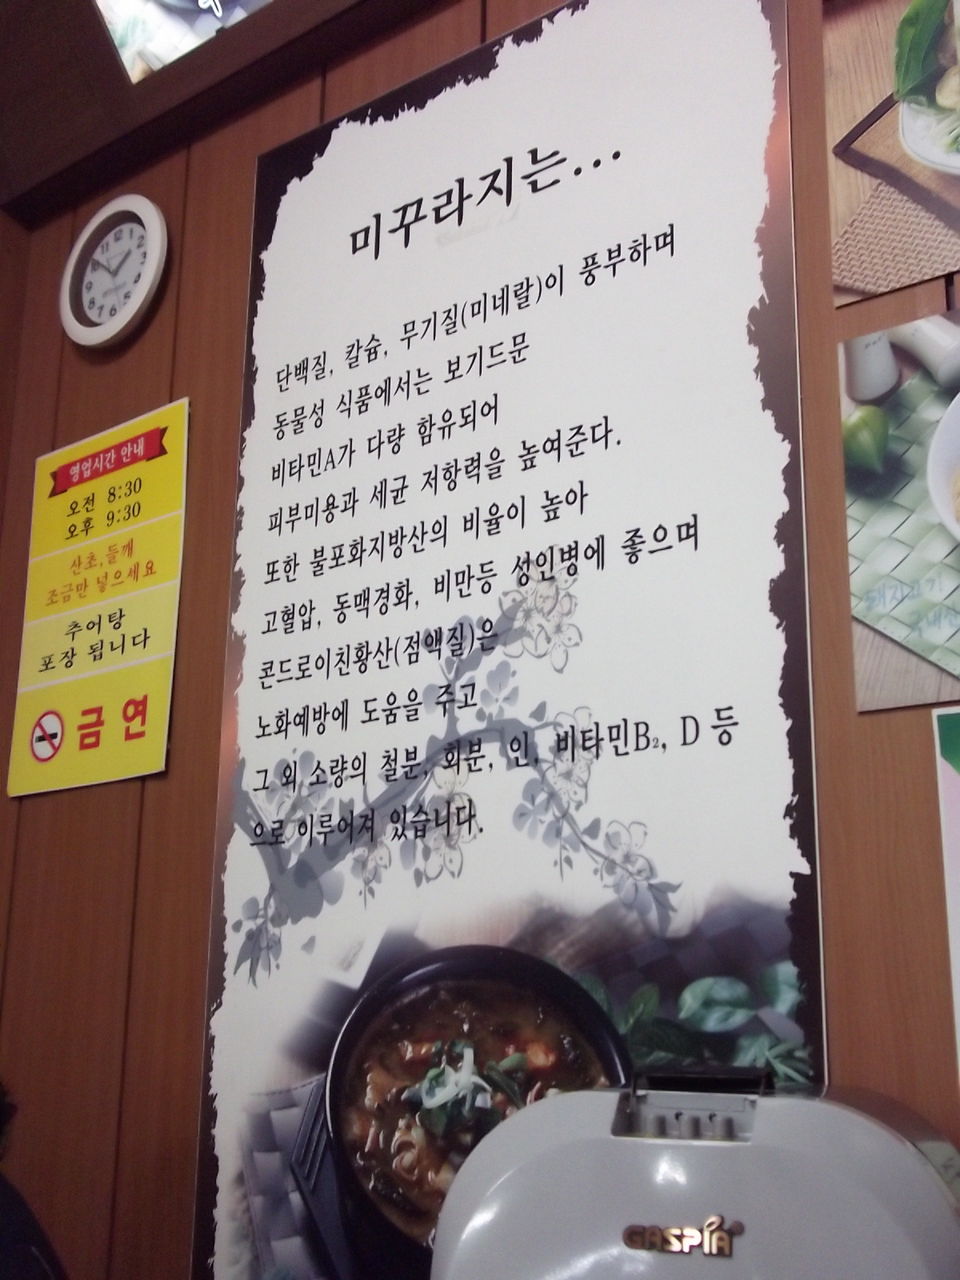 미꾸라지는...
단백질, 칼슘, 무기질(미네랄)이 풍부하며
동물성 식품에서는 보기드문
비타민A가 다량 함유되어
피부미용과 세균 저항력을 높여준다.
또한 불포화지방산의 비율이 높아
고혈압, 동맥경화, 비만등 성인병에 좋으며
콘드로이친황산(점액질)은
노화예방에 도움을 주고
그 외 소량의 철분, 회분, 인, 비타민B₂, D 등
으로 이루어져 있습니다.
영업시간 안내
오전 8:30
오후 9:30
산초,들깨
조금만 넣으세요
추어탕
포장 됩니다
금연
돼지고기
국내산
GASPIA